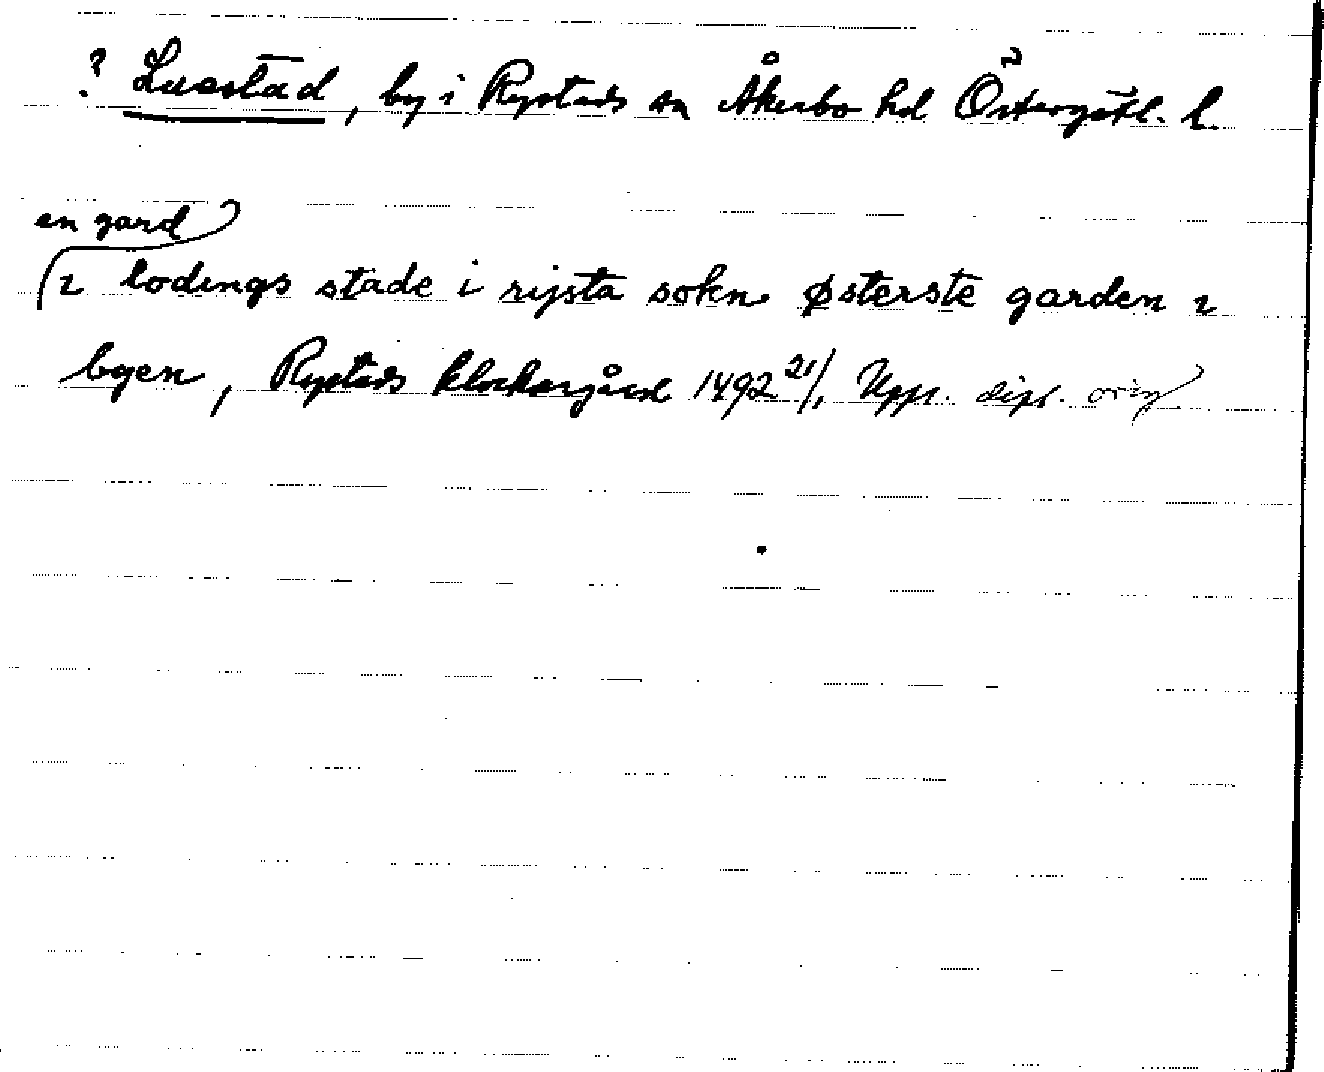 ? Luestad, by i Rystads sn Åkerbo hd Östergötl. l.
en gard
i lodings stade i rijsta sokn østerste garden i
byen, Rystads klockargård 1492 21/1 Upps. dipl. orig